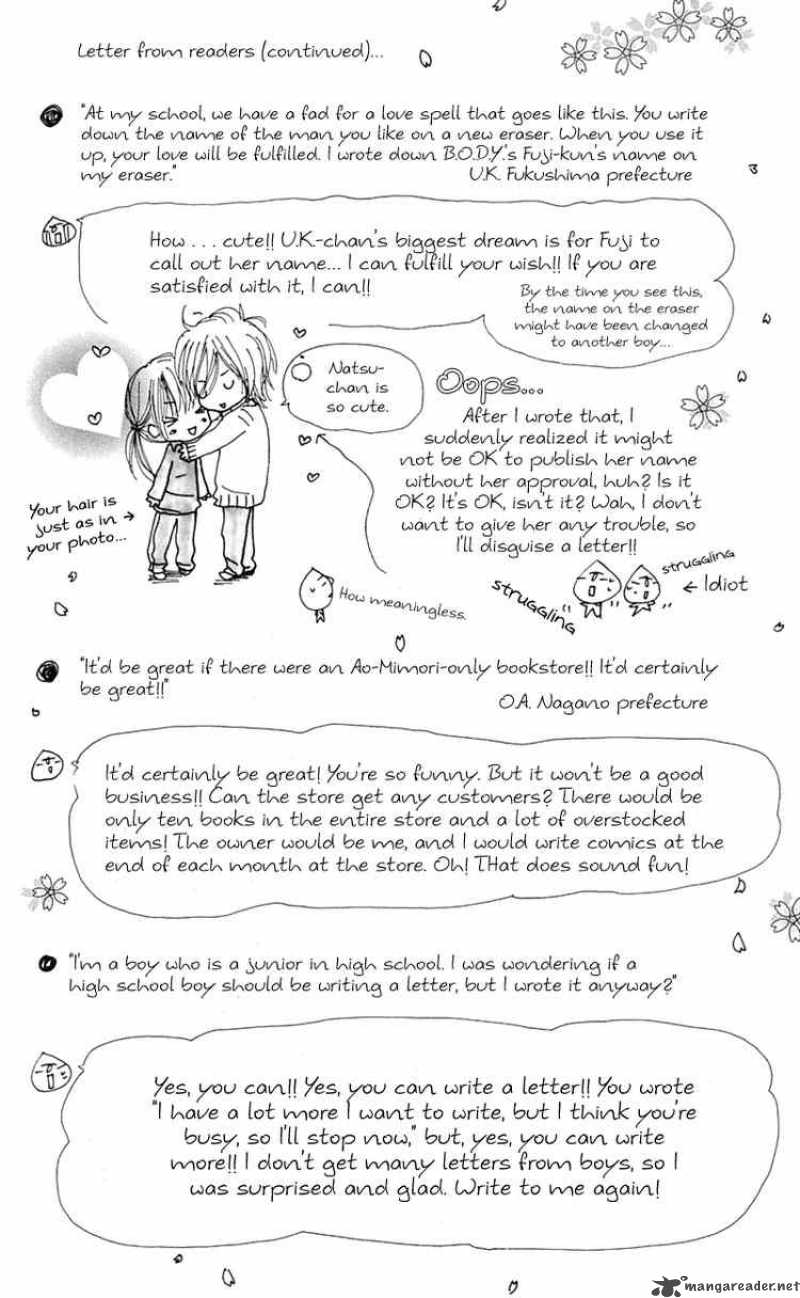 Letter from readers (continued)...
"At my school, we have a fad for a love spell that goes like this. You write
down the name of the man you like on a new eraser. When you use it
up, your love will be fulfilled. I wrote down B.O.D.Y.'s Fuji-kun's name on
my eraser."
U.K. Fukushima prefecture
How . . . cute!! U.K-chan's biggest dream is for Fuji to
call out her name... I can fulfill your wish!! If you are
satisfied with it, I can!!
By the time you see this,
the name on the eraser
might have been changed
to another boy...
Natsu-
chan is
so cute.
Oops...
After I wrote that, I
suddenly realized it might
not be OK to publish her name
without her approval, huh? Is it
OK? It's OK, isn't it? Wah, I don't
want to give her any trouble, so
I'll disguise a letter!!
Your hair is
just as in →
your photo...
How meaningless.
struggling
struggling
← Idiot
"It'd be great if there were an Ao-Mimori-only bookstore!! It'd certainly
be great!!"
O.A. Nagano prefecture
It'd certainly be great! You're so funny. But it won't be a good
business!! Can the store get any customers? There would be
only ten books in the entire store and a lot of overstocked
items! The owner would be me, and I would write comics at the
end of each month at the store. Oh! THat does sound fun!
"I'm a boy who is a junior in high school. I was wondering if a
high school boy should be writing a letter, but I wrote it anyway?"
Yes, you can!! Yes, you can write a letter!! You wrote
"I have a lot more I want to write, but I think you're
busy, so I'll stop now," but, yes, you can write
more!! I don't get many letters from boys, so I
was surprised and glad. Write to me again!
mangareader.net